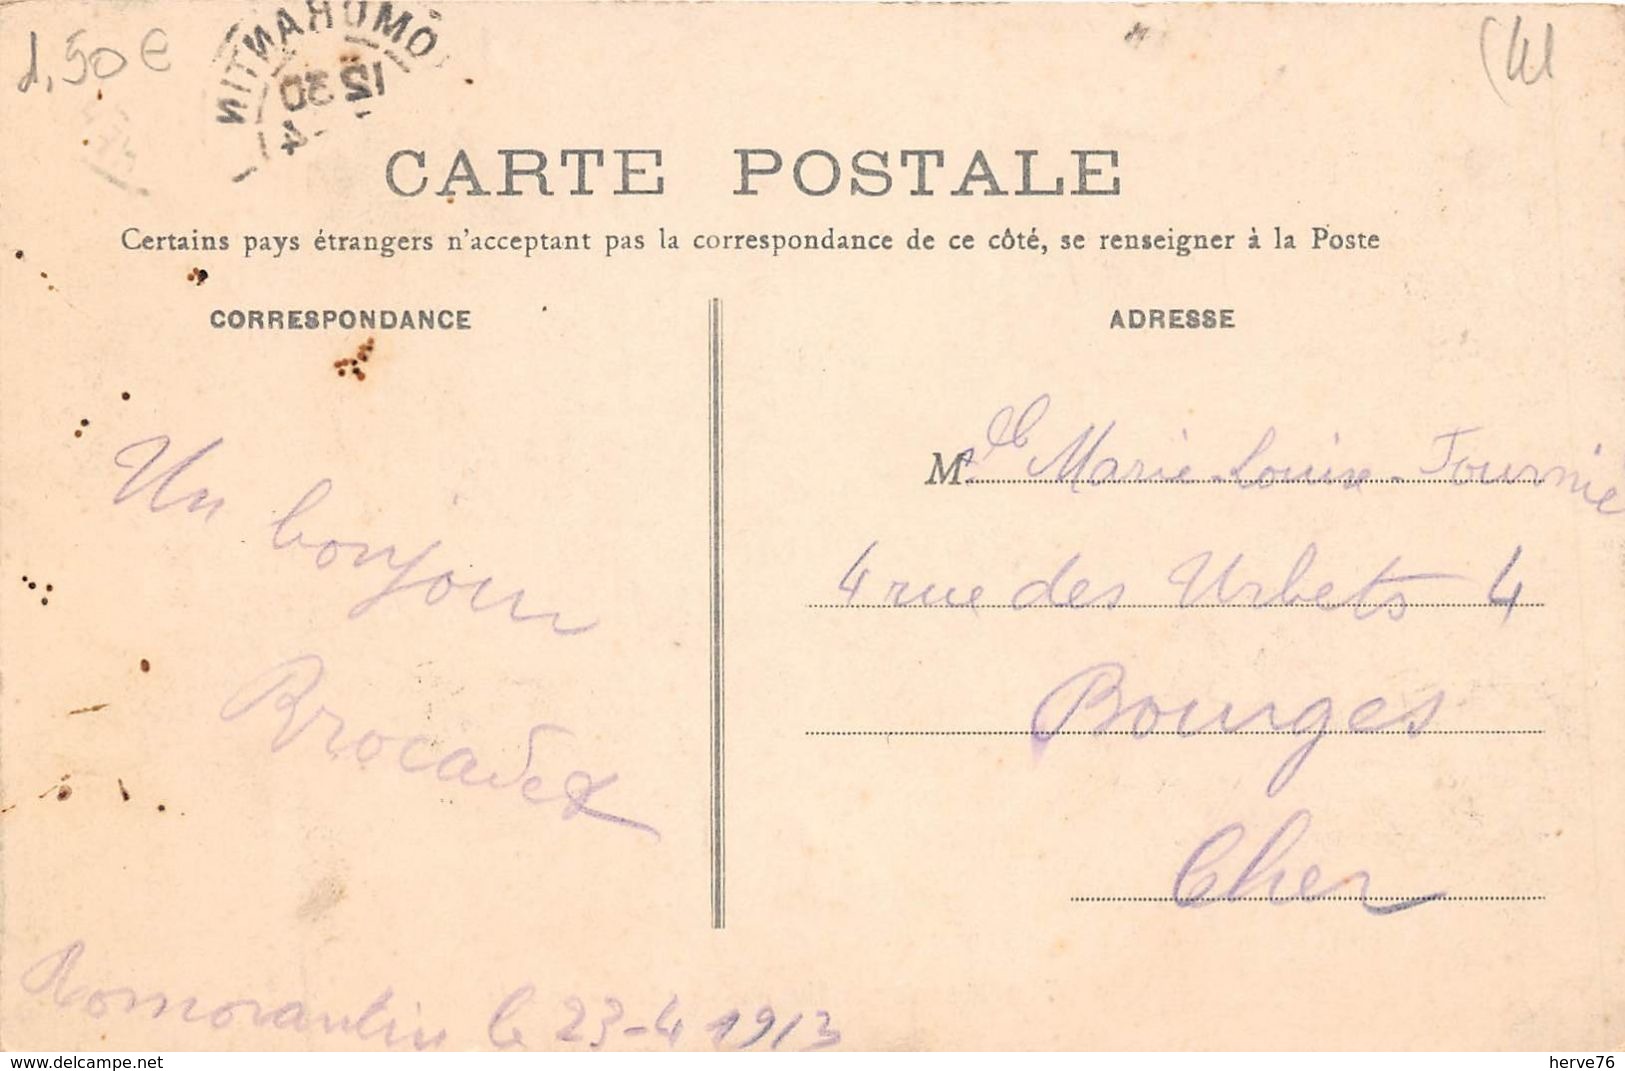 1,50€
OMORANTIN
12 30
(41
CARTE POSTALE
Certains pays étrangers n'acceptant pas la correspondance de ce côté, se renseigner à la Poste
CORRESPONDANCE
Un bonjour
Romorantin le 23-4 1913
ADRESSE
Mlle Marie-Louise-Fournie
4 rue des Urbets 4
Bourges
Cher
https://www.delcampe.net
herve76